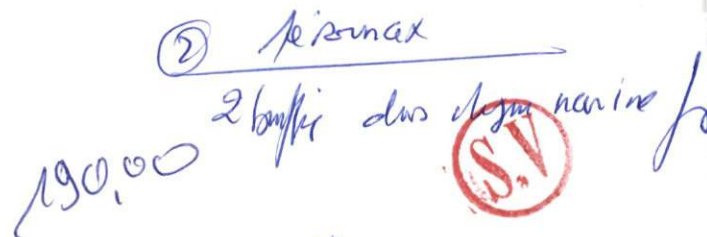 ② Périmax
2 bouffées dans chaque narine
190,00
S.V